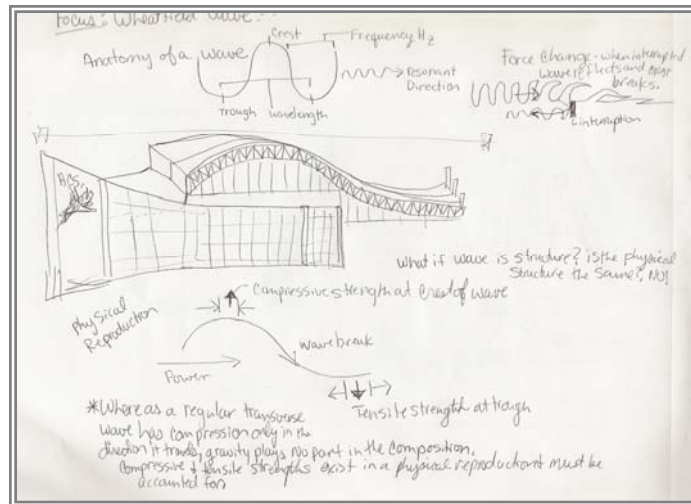 Focus: Wheatfield Wave...
Anatomy of a wave
Crest
Frequency Hz
Trough
wavelength
Resonant
Direction
Force Change - when interrupted
wave reflects and
breaks.
interruption
ACS
What if wave is structure? is the physical
structure the same? NO!
Physical
Reproduction
Compressive strength at crest of wave
Wave break
Power
Tensile strength at trough
*Where as a regular transverse
wave has compression only in the
direction it travels, gravity plays no part in the composition.
Compressive & tensile strengths exist in a physical reproduction & must be
accounted for.